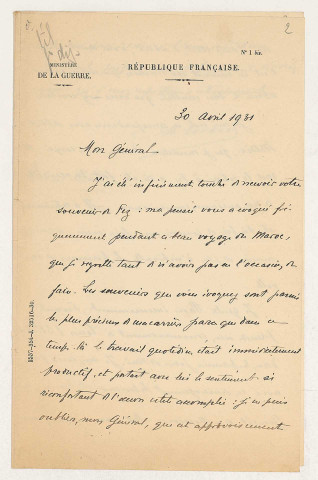 2
MINISTÈRE
DE LA GUERRE.
RÉPUBLIQUE FRANÇAISE.
N° 1 bis.
30 Avril 1931
Mon Général
J'ai été infiniment touché de recevoir votre
souvenir de Fez : ma pensée vous a évoqué fré
quemment pendant ce beau voyage du Maroc,
que je regrette tant de n'avoir pas eu l'occasion de
faire. Les souvenirs que vous évoquez sont parmi
les plus précieux de ma carrière parce que dans ce
temps là le travail quotidien était immédiatement
productif, et portait avec lui le sentiment si
réconfortant de l'œuvre utile accomplie : je ne puis
oublier, mon Général, que cet approvisionnement